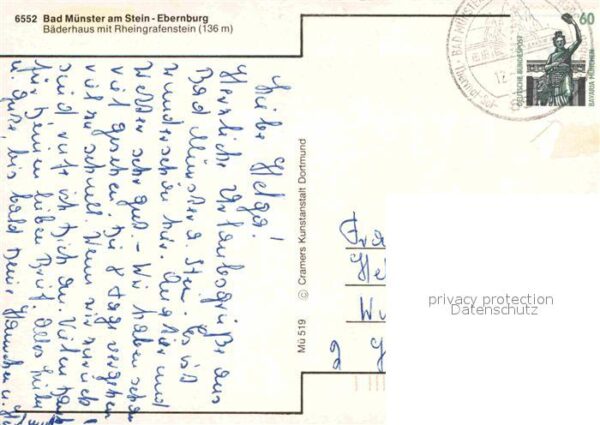 6552 Bad Münster am Stein - Ebernburg
Bäderhaus mit Rheingrafenstein (136 m)
Liebe Helga!
Herzliche Urlaubsgrüße aus
Bad Münster a. Stein. Es ist
wunderschön hier. Auch hier und
Wetter sehr gut - Wir haben schon
viel gesehen. Die 8 Tage vergehen
viel zu schnell. Wenn wir zurück
sind rufe ich Dich an. Vielen Dank
für Deinen lieben Brief. Alles Liebe
u. Gute, bis bald Deine
Mü 519 © Cramers Kunstanstalt Dortmund
60
DEUTSCHE BUNDESPOST
BAVARIA MÜNCHEN
BAD MÜNSTER
12
Fra
He
Wu
2
privacy protection
Datenschutz